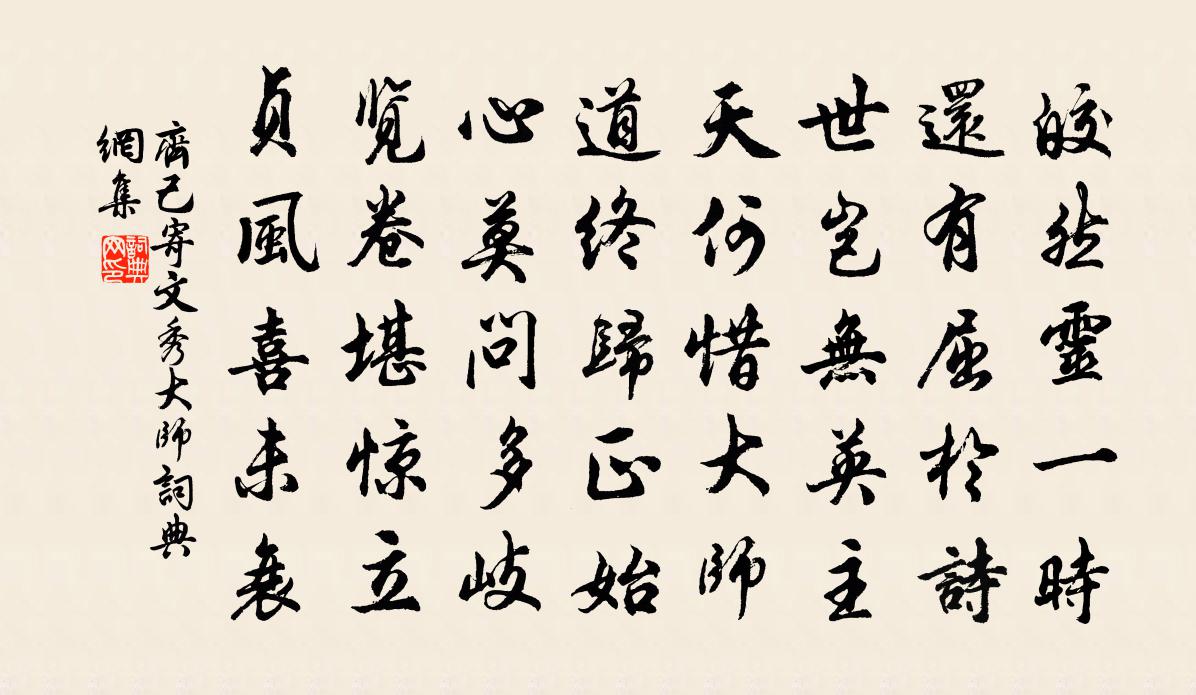 皎然靈一時
還有屈於詩
世豈無英主
天何惜大師
道終歸正始
心莫問多岐
覽卷堪惊立
貞風喜未衰
齊己寄文秀大師詞典
網集
詞典网印